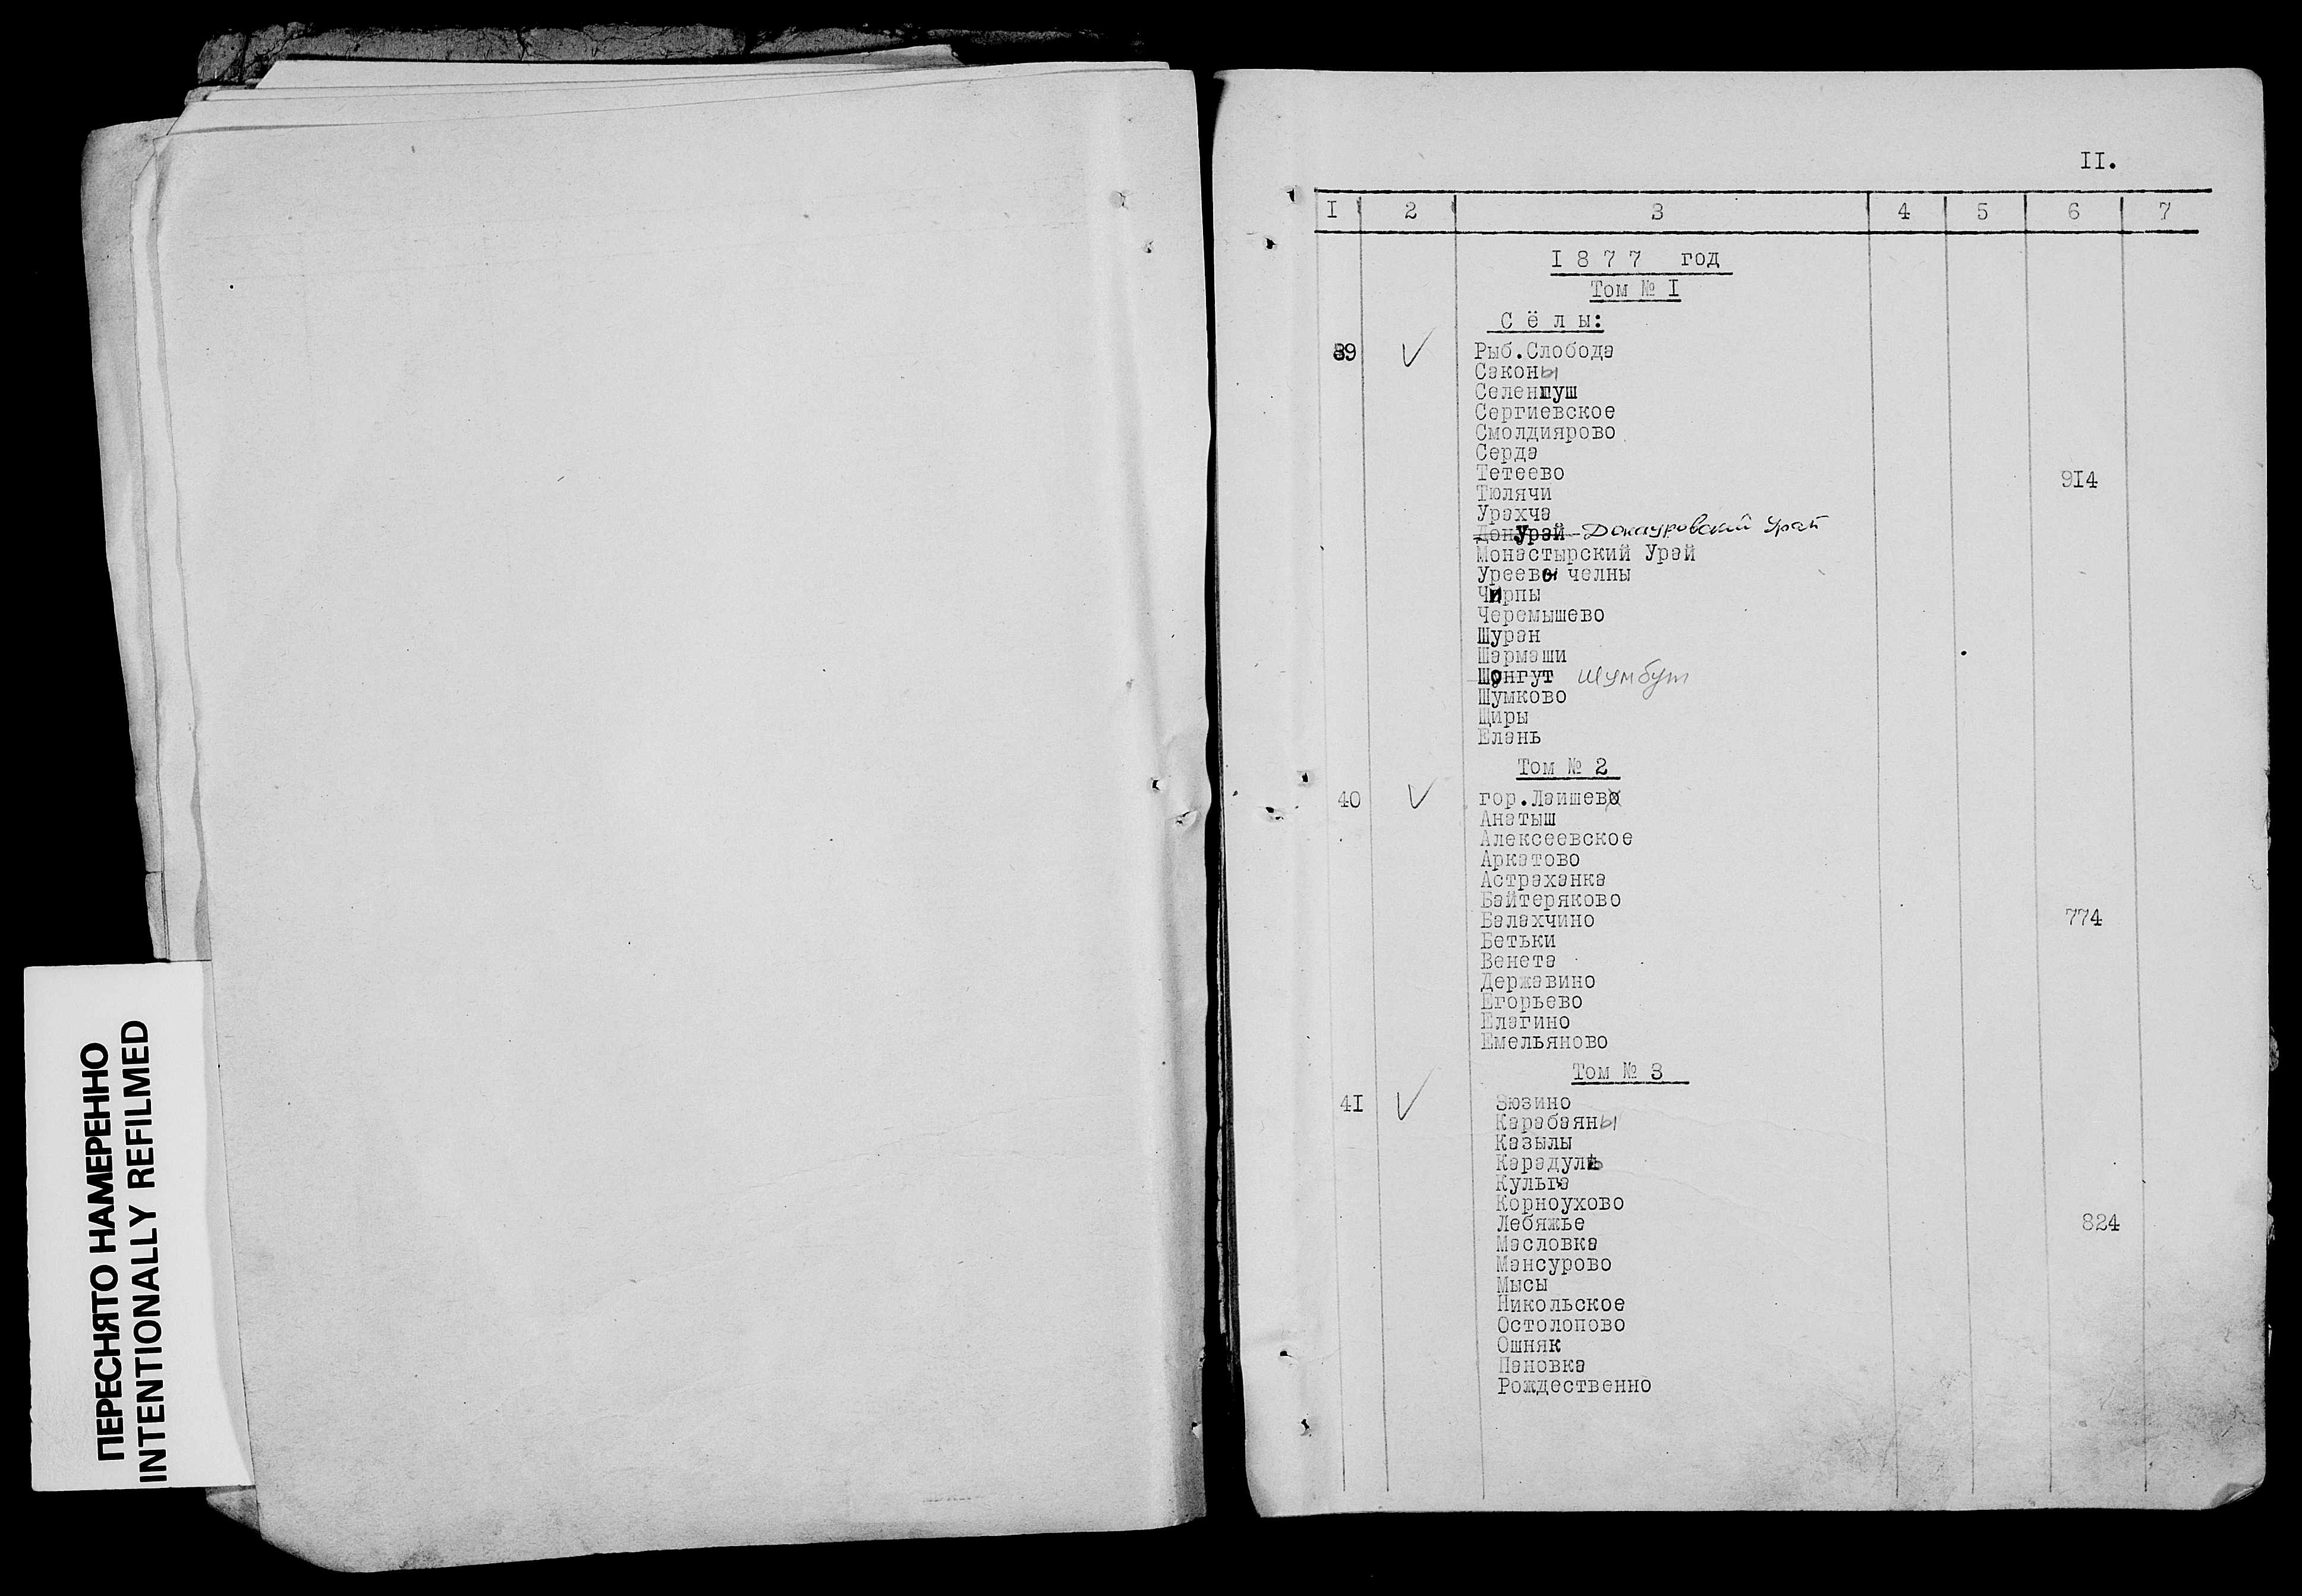 ПЕРЕСНЯТО НАМЕРЕННО
INTENTIONALLY REFILMED
II.
I 2 3 4 5 6 7
I 8 7 7 год
Том № I
С ё л ы:
39 Рыб.Слобода
Саконы
Селенгуш
Сергиевское
Смолдиярово
Серда
Тетеево 9I4
Тюлячи
Урахча
Донурай - Докауровский Урай
Монастырский Урай
Уреевы челны
Чирпы
Черемышево
Шуран
Шармаши
Шонгут Шумбут
Шумково
Щиры
Елань
Том № 2
40 гор.Лаишево
Анатыш
Алексеевское
Аркатово
Астраханка
Байтеряково
Балахчино 774
Бетьки
Венета
Державино
Егорьево
Елагино
Емельяново
Том № 3
4I Зюзино
Карабаяны
Казылы
Карадуль
Кульга
Корноухово
Лебяжье 824
Масловка
Мансурово
Мысы
Никольское
Остолопово
Ошняк
Пановка
Рождественно